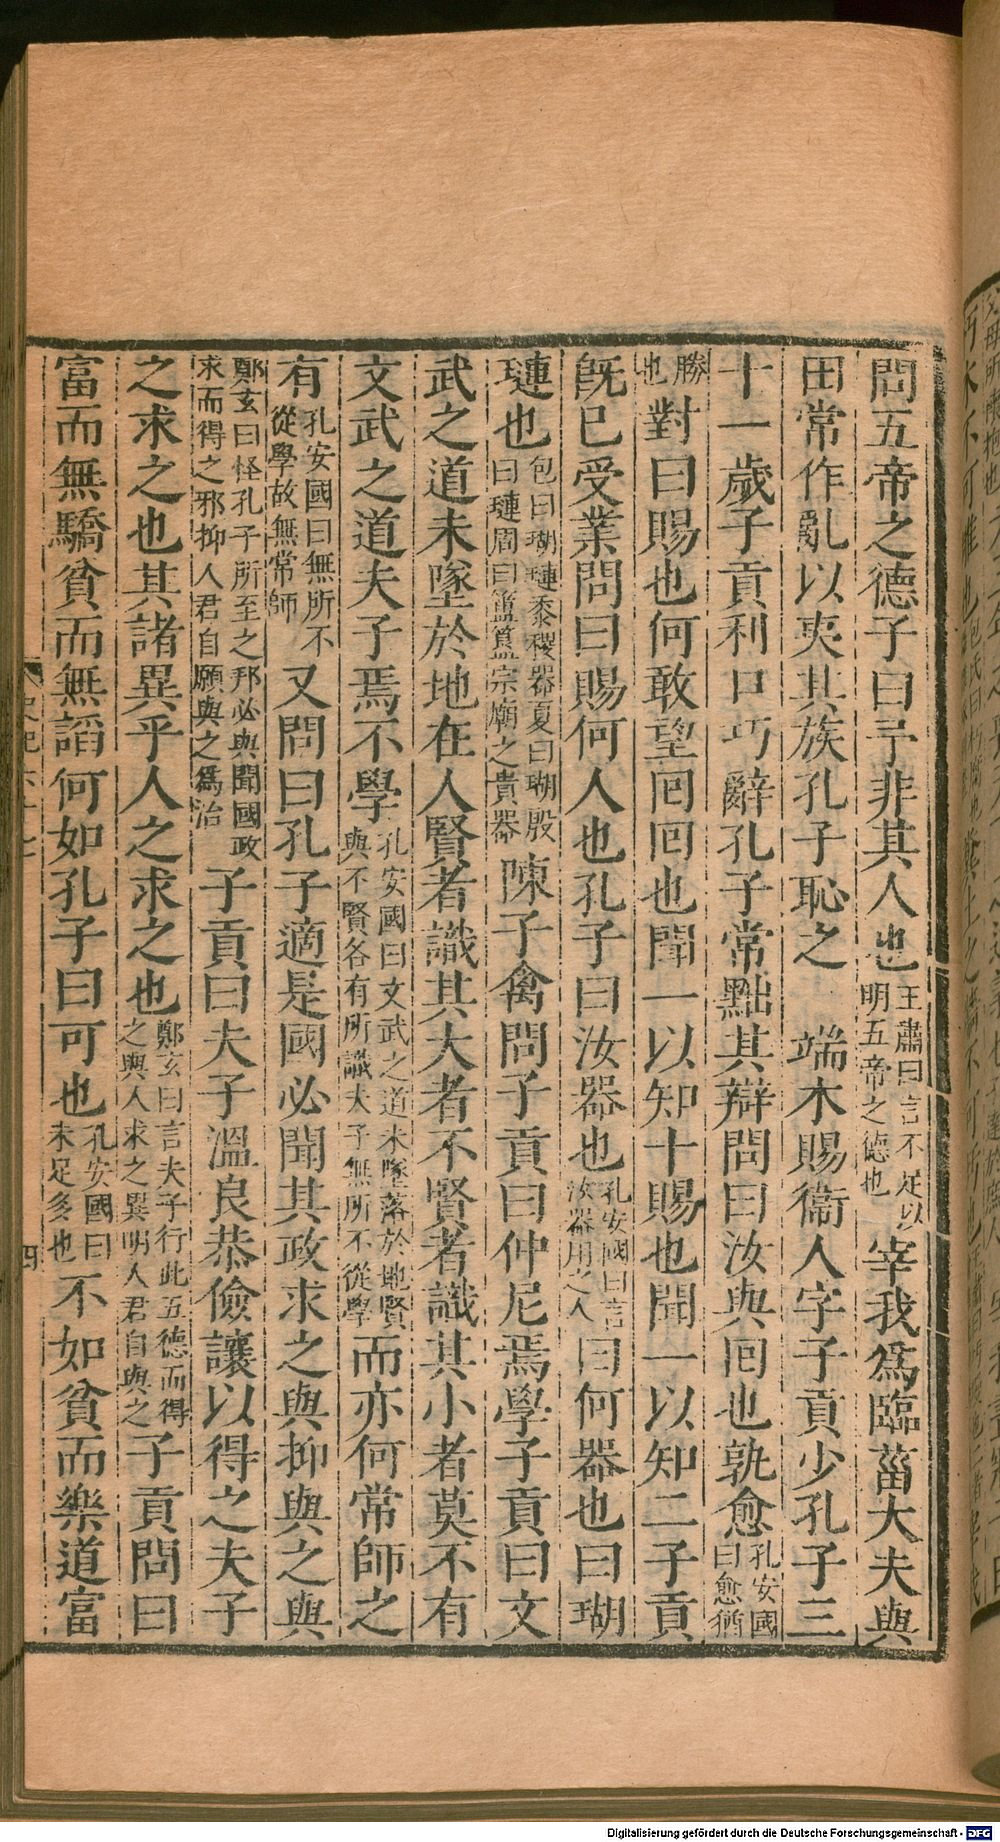 問五帝之德子曰予非其人也王肅曰言不足以明五帝之德也宰我爲臨菑大夫與
田常作亂以夷其族孔子恥之　端木賜衞人字子貢少孔子三
十一歲子貢利口巧辭孔子常黜其辯問曰汝與囘也孰愈孔安國曰愈猶
勝也對曰賜也何敢望囘囘也聞一以知十賜也聞一以知二子貢
旣已受業問曰賜何人也孔子曰汝器也孔安國曰言汝器用之人曰何器也曰瑚
璉也包曰瑚璉黍稷器夏曰瑚殷曰璉周曰簠簋宗廟之貴器陳子禽問子貢曰仲尼焉學子貢曰文
武之道未墜於地在人賢者識其大者不賢者識其小者莫不有
文武之道夫子焉不學孔安國曰文武之道未墜落於地賢與不賢各有所識夫子無所不從學而亦何常師之
有孔安國曰無所不從學故無常師又問曰孔子適是國必聞其政求之與抑與之與
鄭玄曰怪孔子所至之邦必與聞國政求而得之邪抑人君自願與之爲治子貢曰夫子溫良恭儉讓以得之夫子
之求之也其諸異乎人之求之也鄭玄曰言夫子行此五德而得之與人求之異明人君自與之子貢問曰
富而無驕貧而無諂何如孔子曰可也孔安國曰未足多也不如貧而樂道富
四
Digitalisierung gefördert durch die Deutsche Forschungsgemeinschaft - DFG